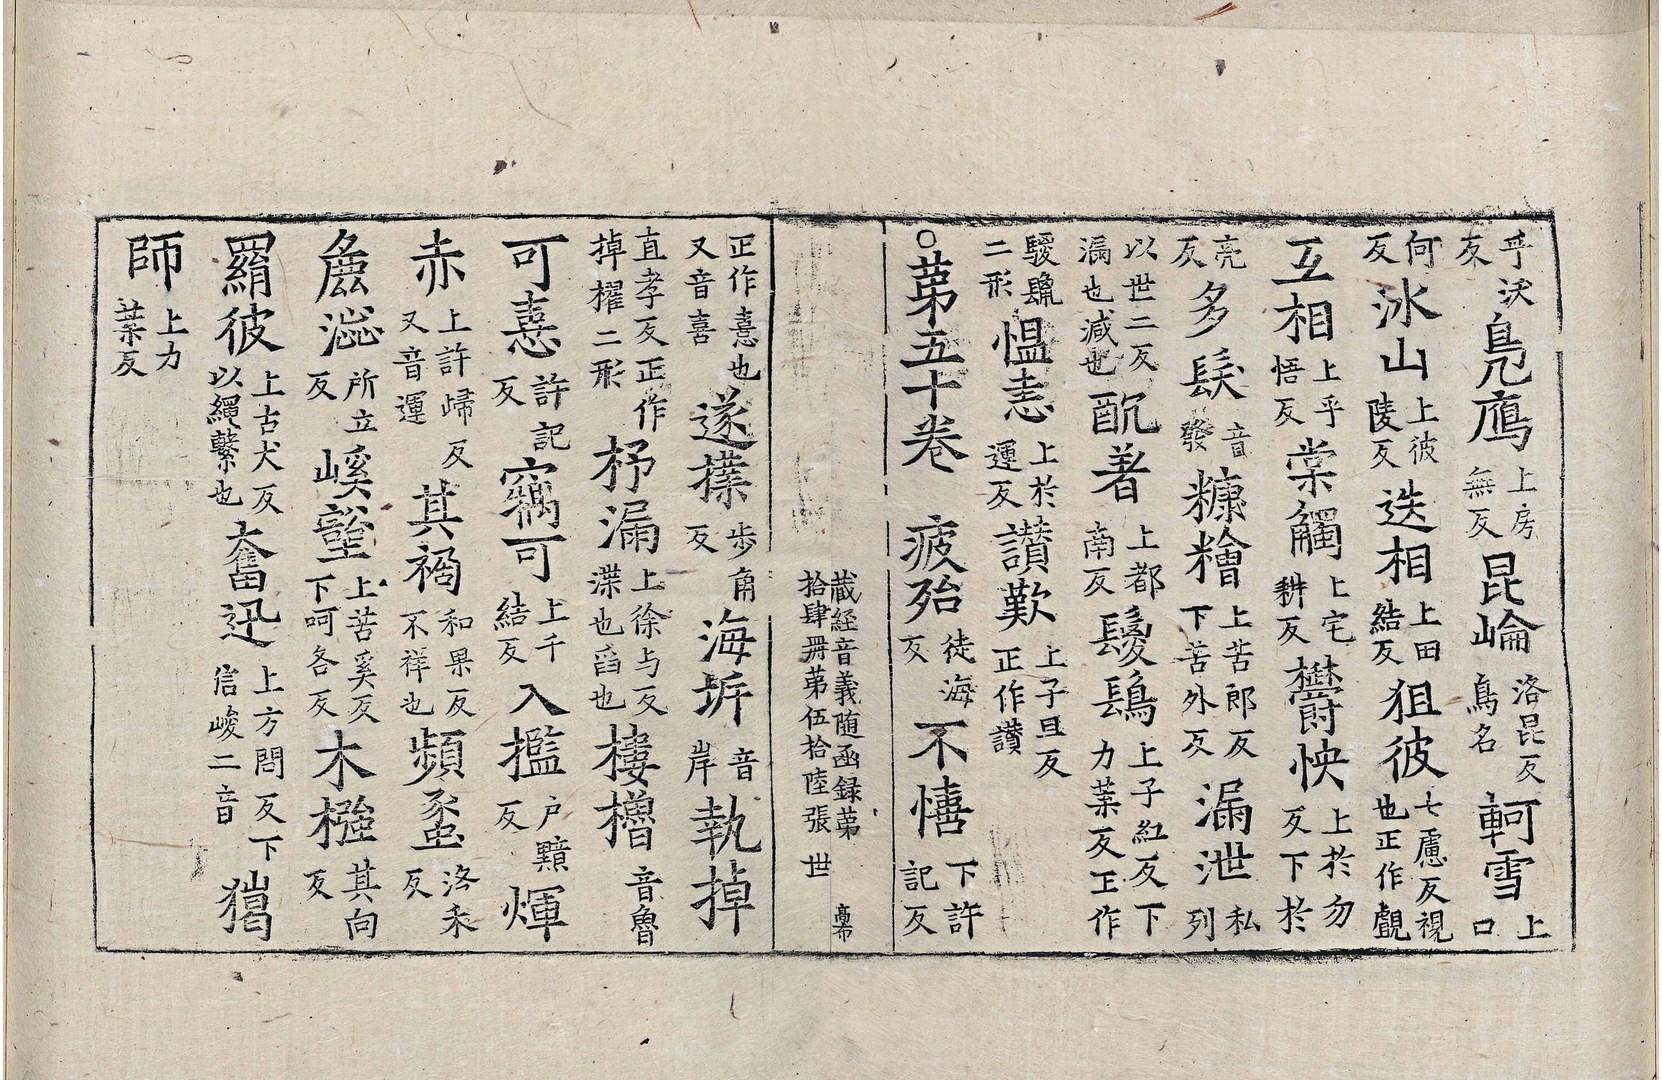 乎沃反鳬鴈上房無反昆崘洛昆反鳥名軻雪上口
何反冰山上彼陵反迭相上田結反狙彼七慮反視也正作覰
互相上乎悟反棠觸上宅耕反欝怏上於勿反下於
亮反多髮音發糠糩上苦郎反下苦外反漏泄私列
以世二反漏也減也酖著上都南反鬉鬣上子紅反下力葉反正作
騣鬣二形愠恚上於運反讃歎上子旦反正作讃
○苐五十卷 疲殆徒海反不憘下許記反
蔵経音義随函録苐拾肆冊苐伍拾陸張 世
正作憙也又音喜遂撲步角反海圻音岸執掉
直孝反正作掉櫂二形杼漏上徐与反渫也舀也樓櫓音魯
可憙許記反竊可上千結反入檻戶黤反煇
赤上許歸反又音運其禍和果反不祥也頻蟸洛禾反
麁澁所立反嵠壑上苦奚反下呵各反木橿其向反
羂彼上古犬反以繩繫也奮迅上方問反下信峻二音獦
師上力葉反